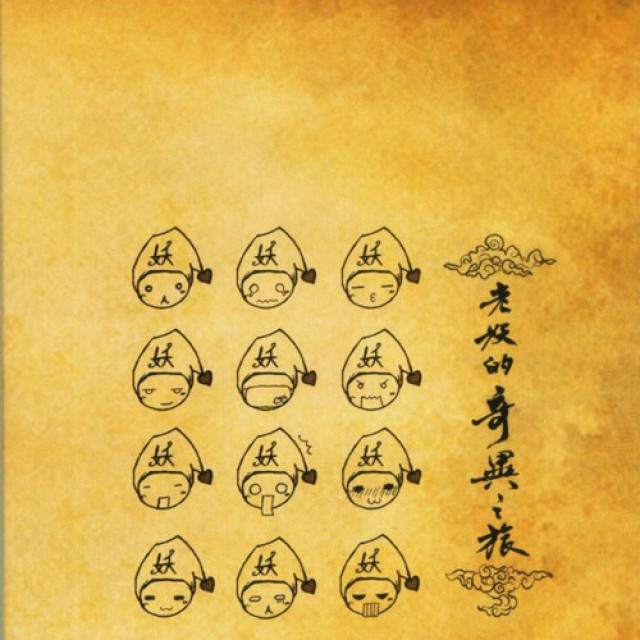 妖 妖 妖
妖 妖 妖
妖 妖 妖
妖 妖 妖
老妖的奇異之旅